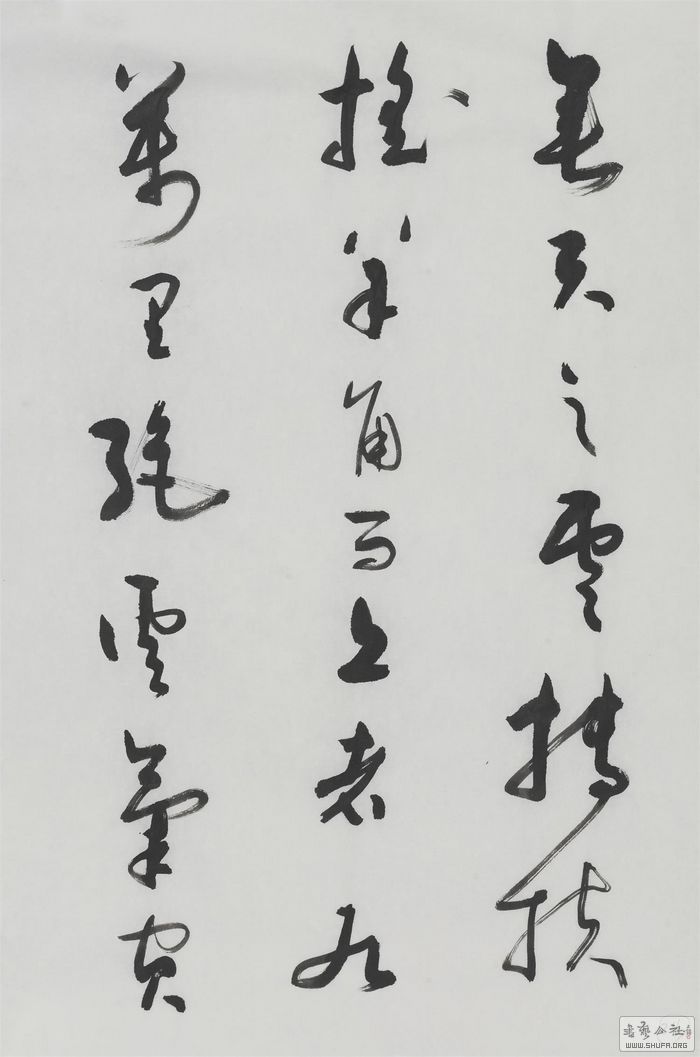 垂天之雲摶扶
搖羊角而上者九
萬里絕雲氣負
書藝公社
WWW.SHUFA.ORG